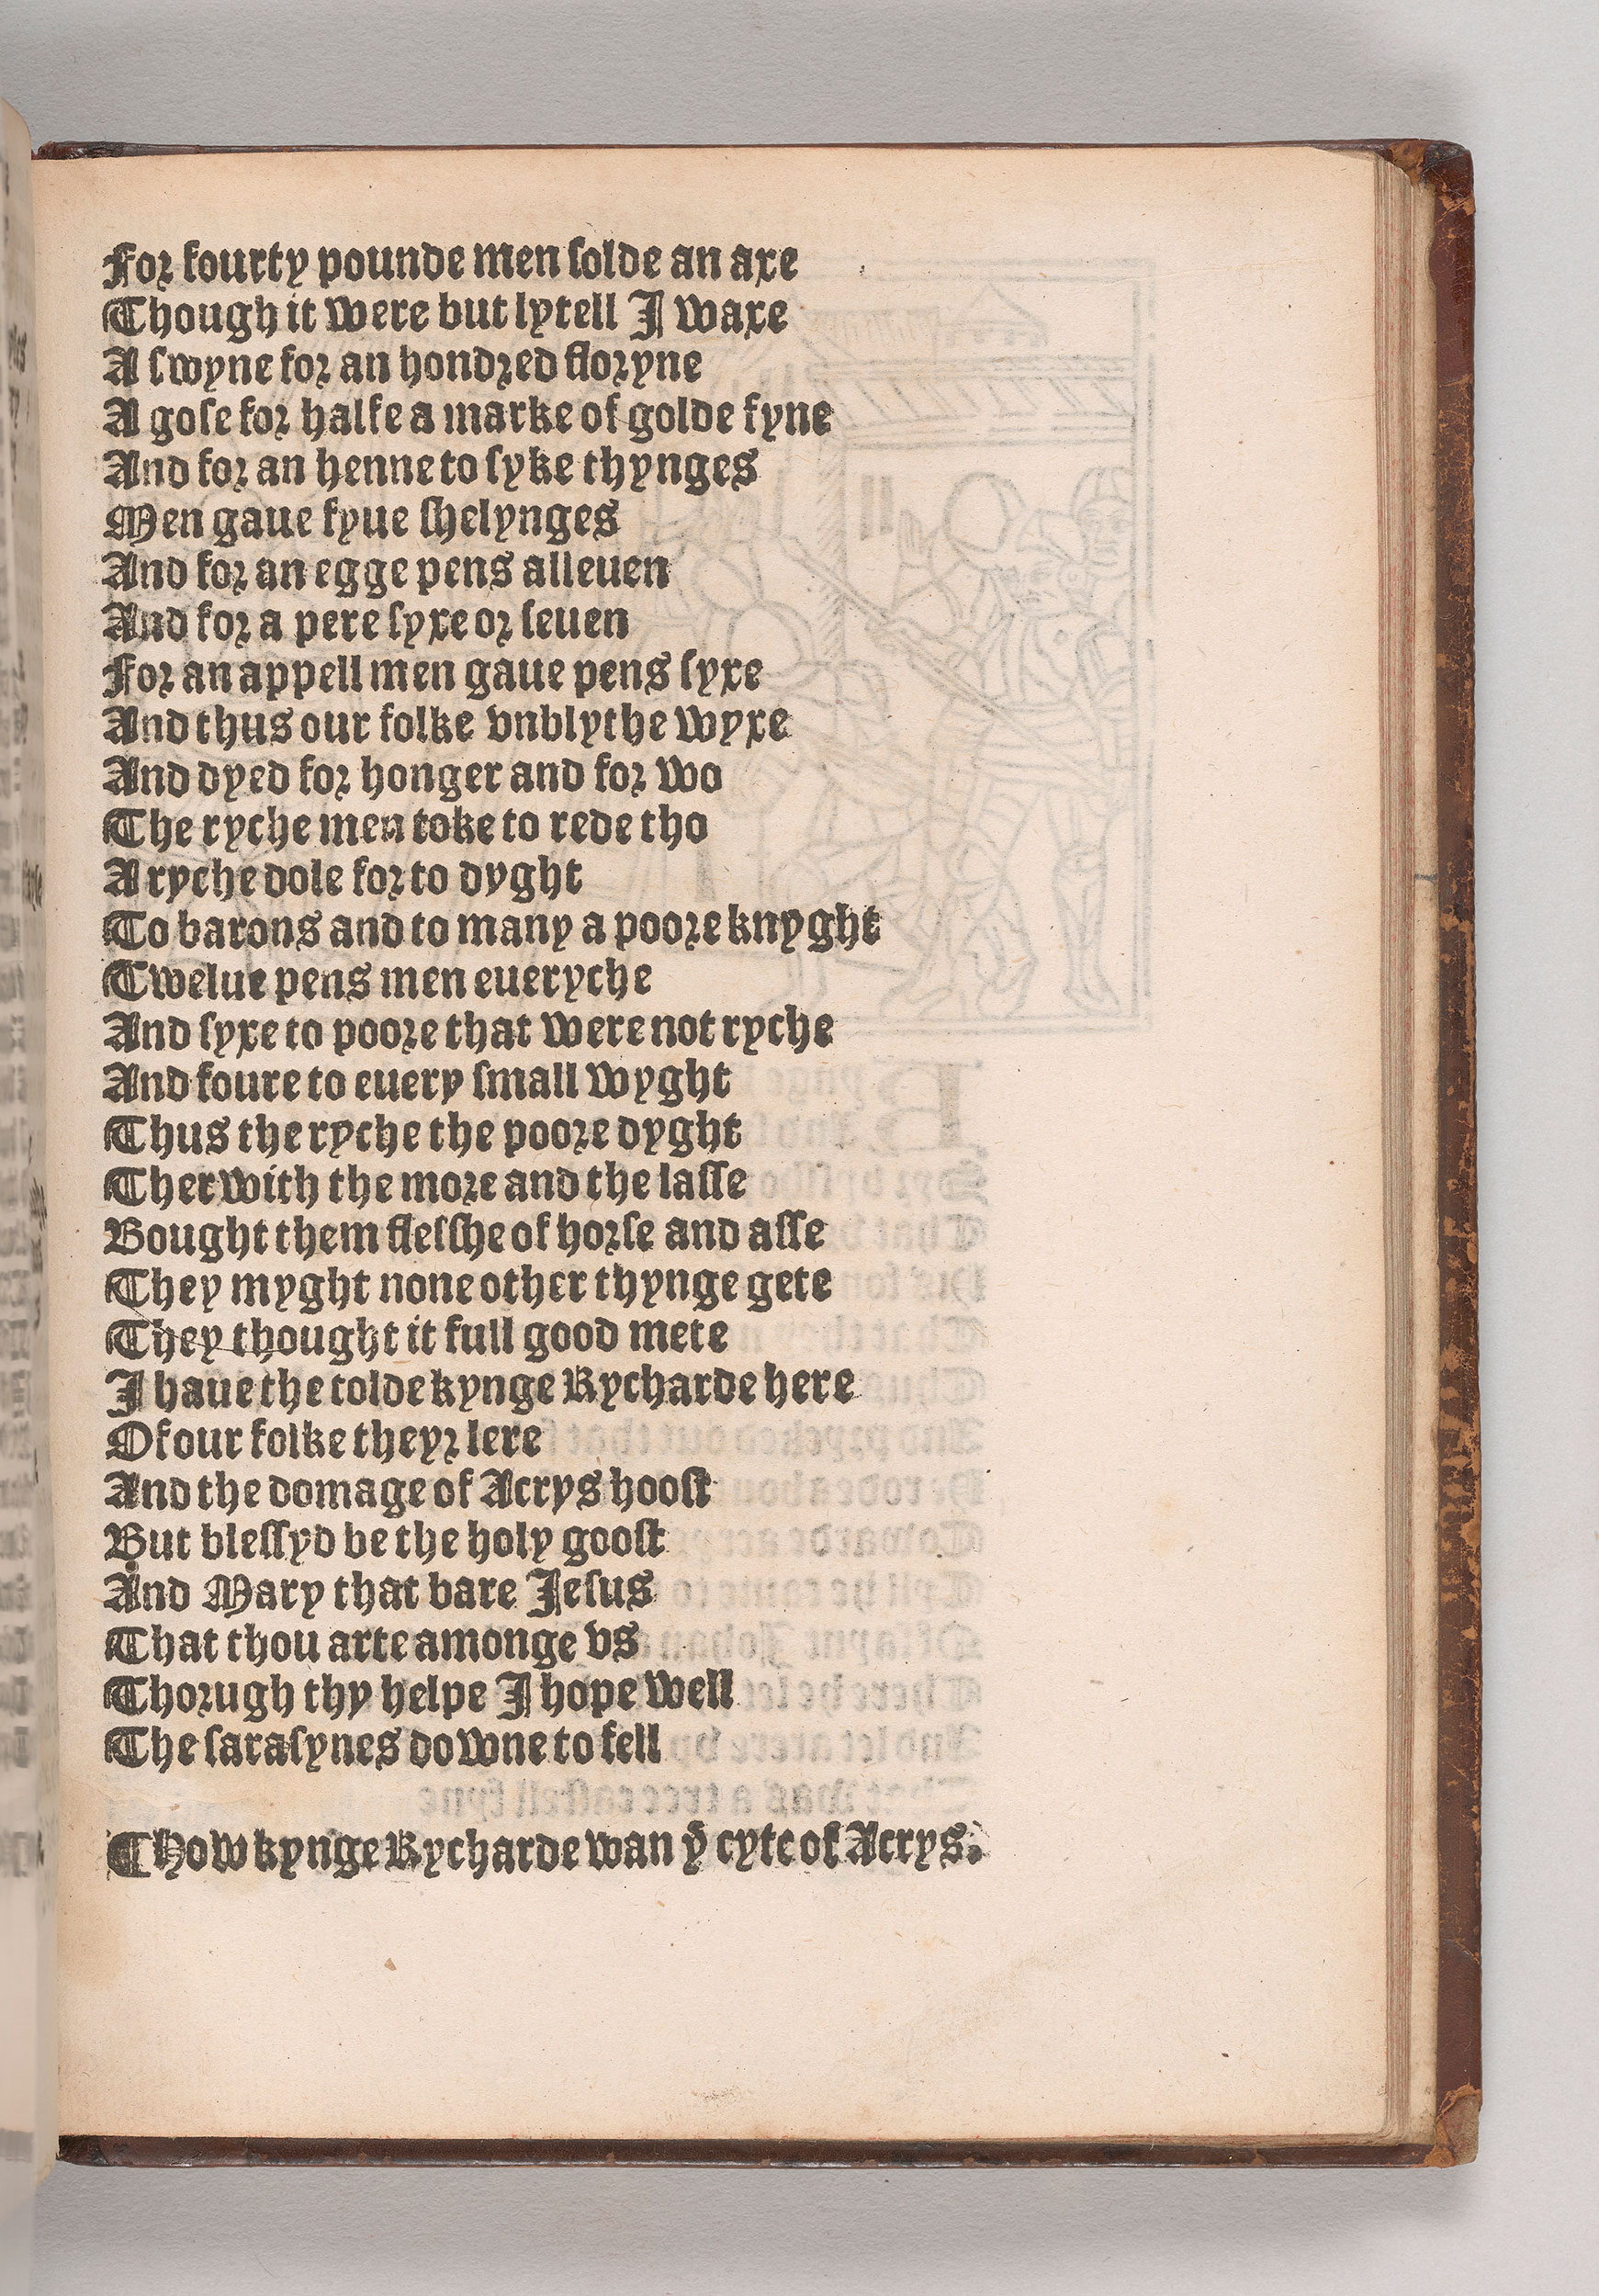 For fourty pounde men ſolde an axe
Though it were but lytell J waxe
A ſwyne for an hondred floryne
A goſe for halfe a marke of golde fyne
And for an henne to ſyke thynges
Men gaue fyue ſhelynges
And for an egge pens alleuen
And for a pere ſyxe or ſeuen
For an appell men gaue pens ſyxe
And thus our folke vnblythe wyxe
And dyed for honger and for wo
The ryche men toke to rede tho
A ryche dole for to dyght
To barons and to many a poore knyght
Twelue pens men eueryche
And ſyxe to poore that were not ryche
And foure to euery ſmall wyght
Thus the ryche the poore dyght
Therwith the more and the laſſe
Bought them fleſſhe of horſe and aſſe
They myght none other thynge gete
They thought it full good mete
J haue the tolde kynge Rycharde here
Of our folke theyr lere
And the domage of Acrys hooſt
But bleſſyd be the holy gooſt
And Mary that bare Jeſus
That thou arte amonge vs
Thorugh thy helpe J hope well
The ſaraſynes downe to fell
¶ How kynge Rycharde wan yͤ cyte of Acrys.